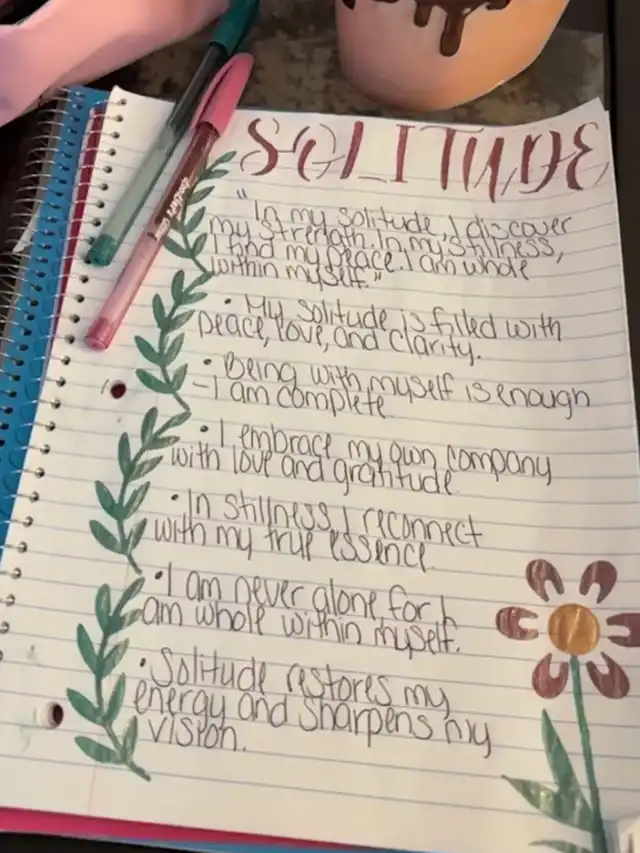 SOLITUDE
"In my solitude, I discover
my strength. In my stillness,
I find my peace. I am whole
within myself."
• My solitude is filled with
peace, love, and clarity.
• Being with myself is enough
- I am complete.
• I embrace my own company
with love and gratitude.
• In stillness, I reconnect
with my true essence.
• I am never alone, for I
am whole within myself.
• Solitude restores my
energy and sharpens my
vision.